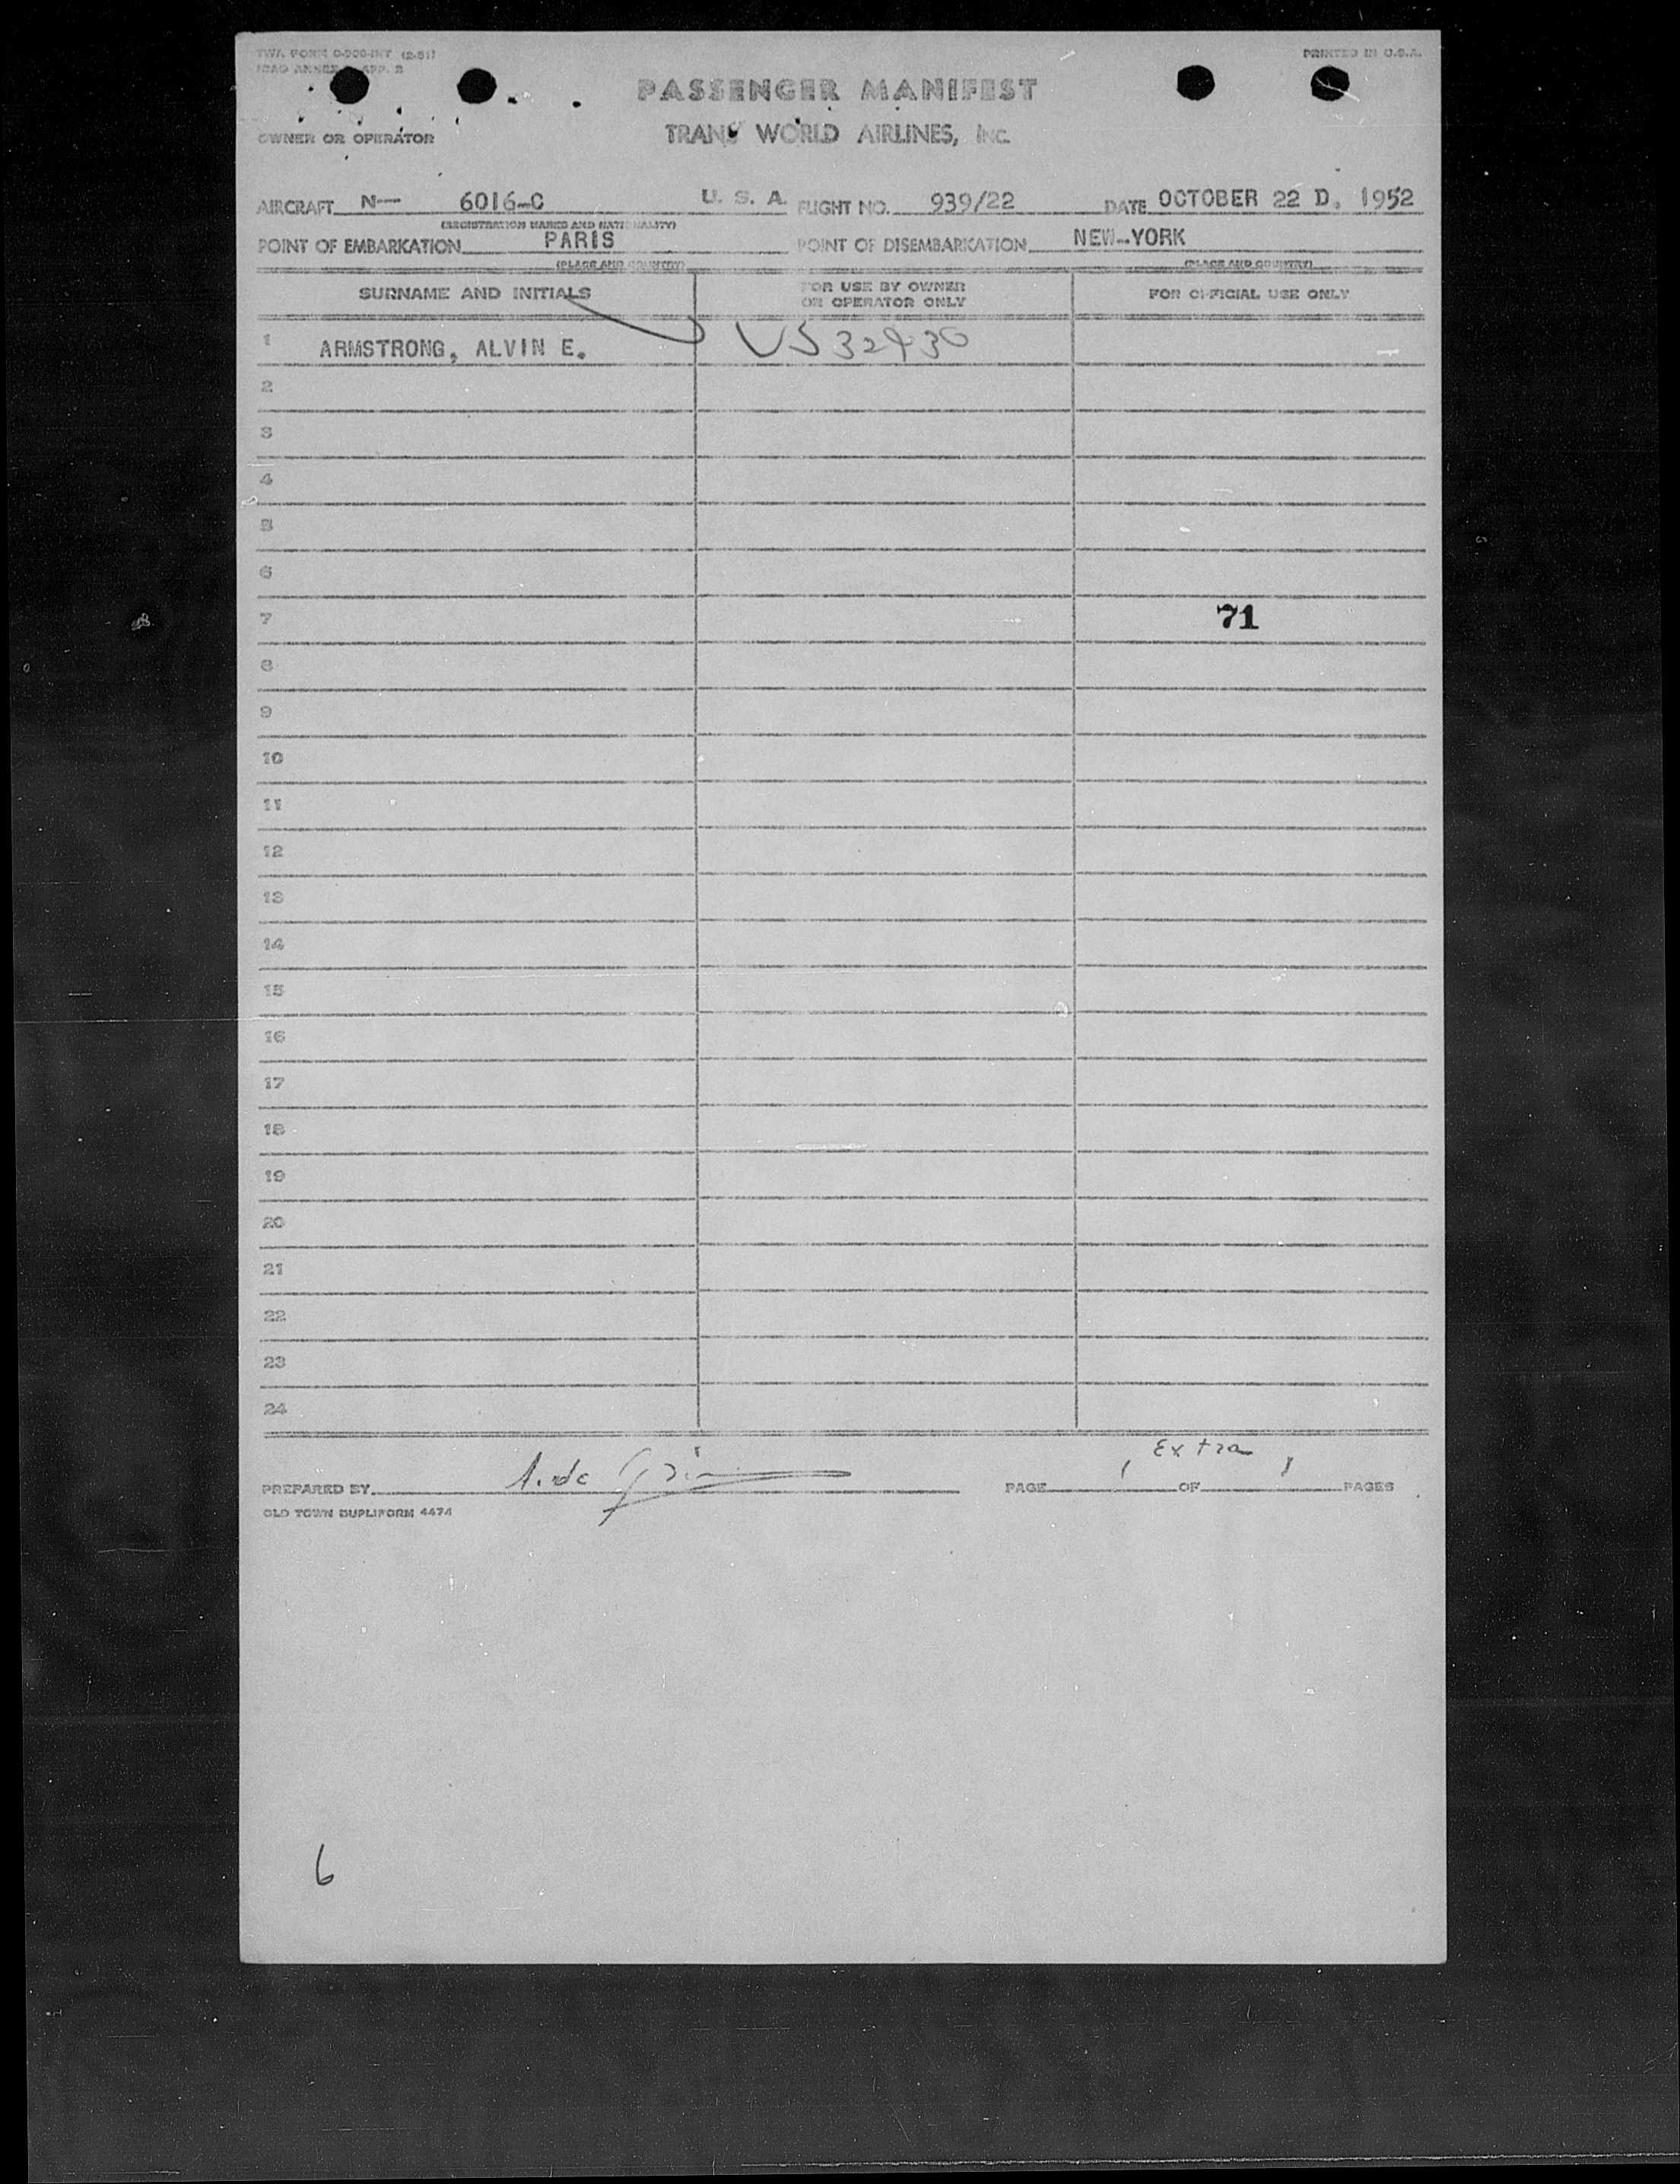 TWA FORM O-200-INT (2-51)
PRINTED IN U.S.A.
ICAO ANNEX APP. 2
PASSENGER MANIFEST
OWNER OR OPERATOR
TRANS WORLD AIRLINES, INC.
AIRCRAFT N— 6016-C U. S. A. FLIGHT NO. 939/22 DATE OCTOBER 22 D. 1952
(REGISTRATION MARKS AND NATIONALITY)
POINT OF EMBARKATION PARIS POINT OF DISEMBARKATION NEW-YORK
(PLACE AND COUNTRY) (PLACE AND COUNTRY)
SURNAME AND INITIALS FOR USE BY OWNER OR OPERATOR ONLY FOR OFFICIAL USE ONLY
1 ARMSTRONG, ALVIN E. US 32430
2
3
4
5
6
7 71
8
9
10
11
12
13
14
15
16
17
18
19
20
21
22
23
24
Extra
PREPARED BY A. de PAGE 1 OF 1 PAGES
OLD TOWN DUPLIFORM 4474
6